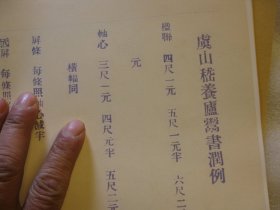 虞山嵇養廬鬻書潤例
楹聯 四尺一元 五尺一元半 六尺二
元
軸心 三尺一元 四尺元半 五尺二元
橫幅同
屏條 每條照軸心減半
每條照